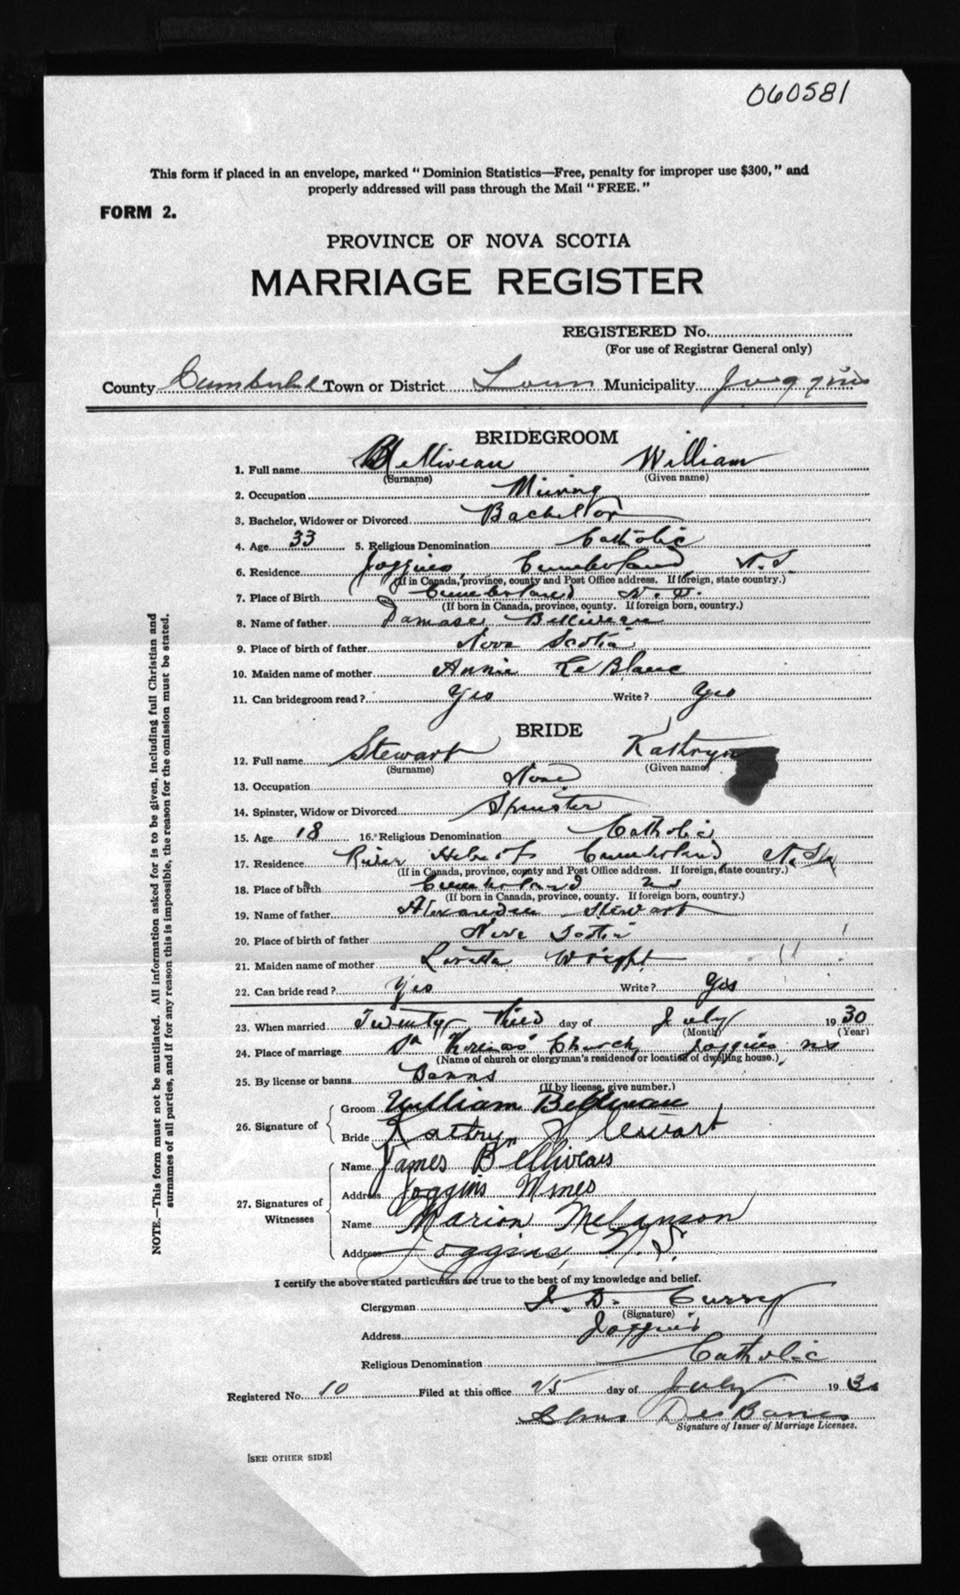 060581
This form if placed in an envelope, marked "Dominion Statistics—Free, penalty for improper use $300," and
properly addressed will pass through the Mail "FREE."
FORM 2.
PROVINCE OF NOVA SCOTIA
MARRIAGE REGISTER
REGISTERED No.
(For use of Registrar General only)
County Cumberland Town or District Town Municipality Joggins
BRIDEGROOM
1. Full name Belliveau William
(Surname) (Given name)
2. Occupation Mining
3. Bachelor, Widower or Divorced Bachelor
4. Age 33 5. Religious Denomination Catholic
6. Residence Joggins Cumberland N.S.
(If in Canada, province, county and Post Office address. If foreign, state country.)
7. Place of Birth Cumberland N.S.
(If born in Canada, province, county. If foreign born, country.)
8. Name of father Damase Belliveau
9. Place of birth of father Nova Scotia
10. Maiden name of mother Annie LeBlanc
11. Can bridegroom read? Yes Write? Yes
BRIDE
12. Full name Stewart Kathryn
(Surname) (Given name)
13. Occupation None
14. Spinster, Widow or Divorced Spinster
15. Age 18 16. Religious Denomination Catholic
17. Residence River Hebert Cumberland N.S.
(If in Canada, province, county and Post Office address. If foreign, state country.)
18. Place of birth Cumberland NS
(If born in Canada, province, county. If foreign born, country.)
19. Name of father Alexander Stewart
20. Place of birth of father Nova Scotia
21. Maiden name of mother Loretta Wright
22. Can bride read? Yes Write? Yes
23. When married Twenty third day of July 1930
(Month) (Year)
24. Place of marriage Church, Joggins NS
(Name of church or clergyman's residence or location of dwelling house.)
25. By license or banns Banns
(If by license, give number.)
26. Signature of { Groom William Belliveau
Bride Kathryn Stewart
27. Signatures of Witnesses { Name James Belliveau
Address Joggins Mines
Name Marion Melanson
Address Joggins, N.S.
I certify the above stated particulars are true to the best of my knowledge and belief.
Clergyman D. Curry
(Signature)
Address Joggins
Religious Denomination Catholic
Registered No. 10 Filed at this office 25 day of July 1930
DesBarres
Signature of Issuer of Marriage Licenses.
[SEE OTHER SIDE]
NOTE.—This form must not be mutilated. All information asked for is to be given, including full Christian and
surnames of all parties, and if for any reason this is impossible, the reason for the omission must be stated.